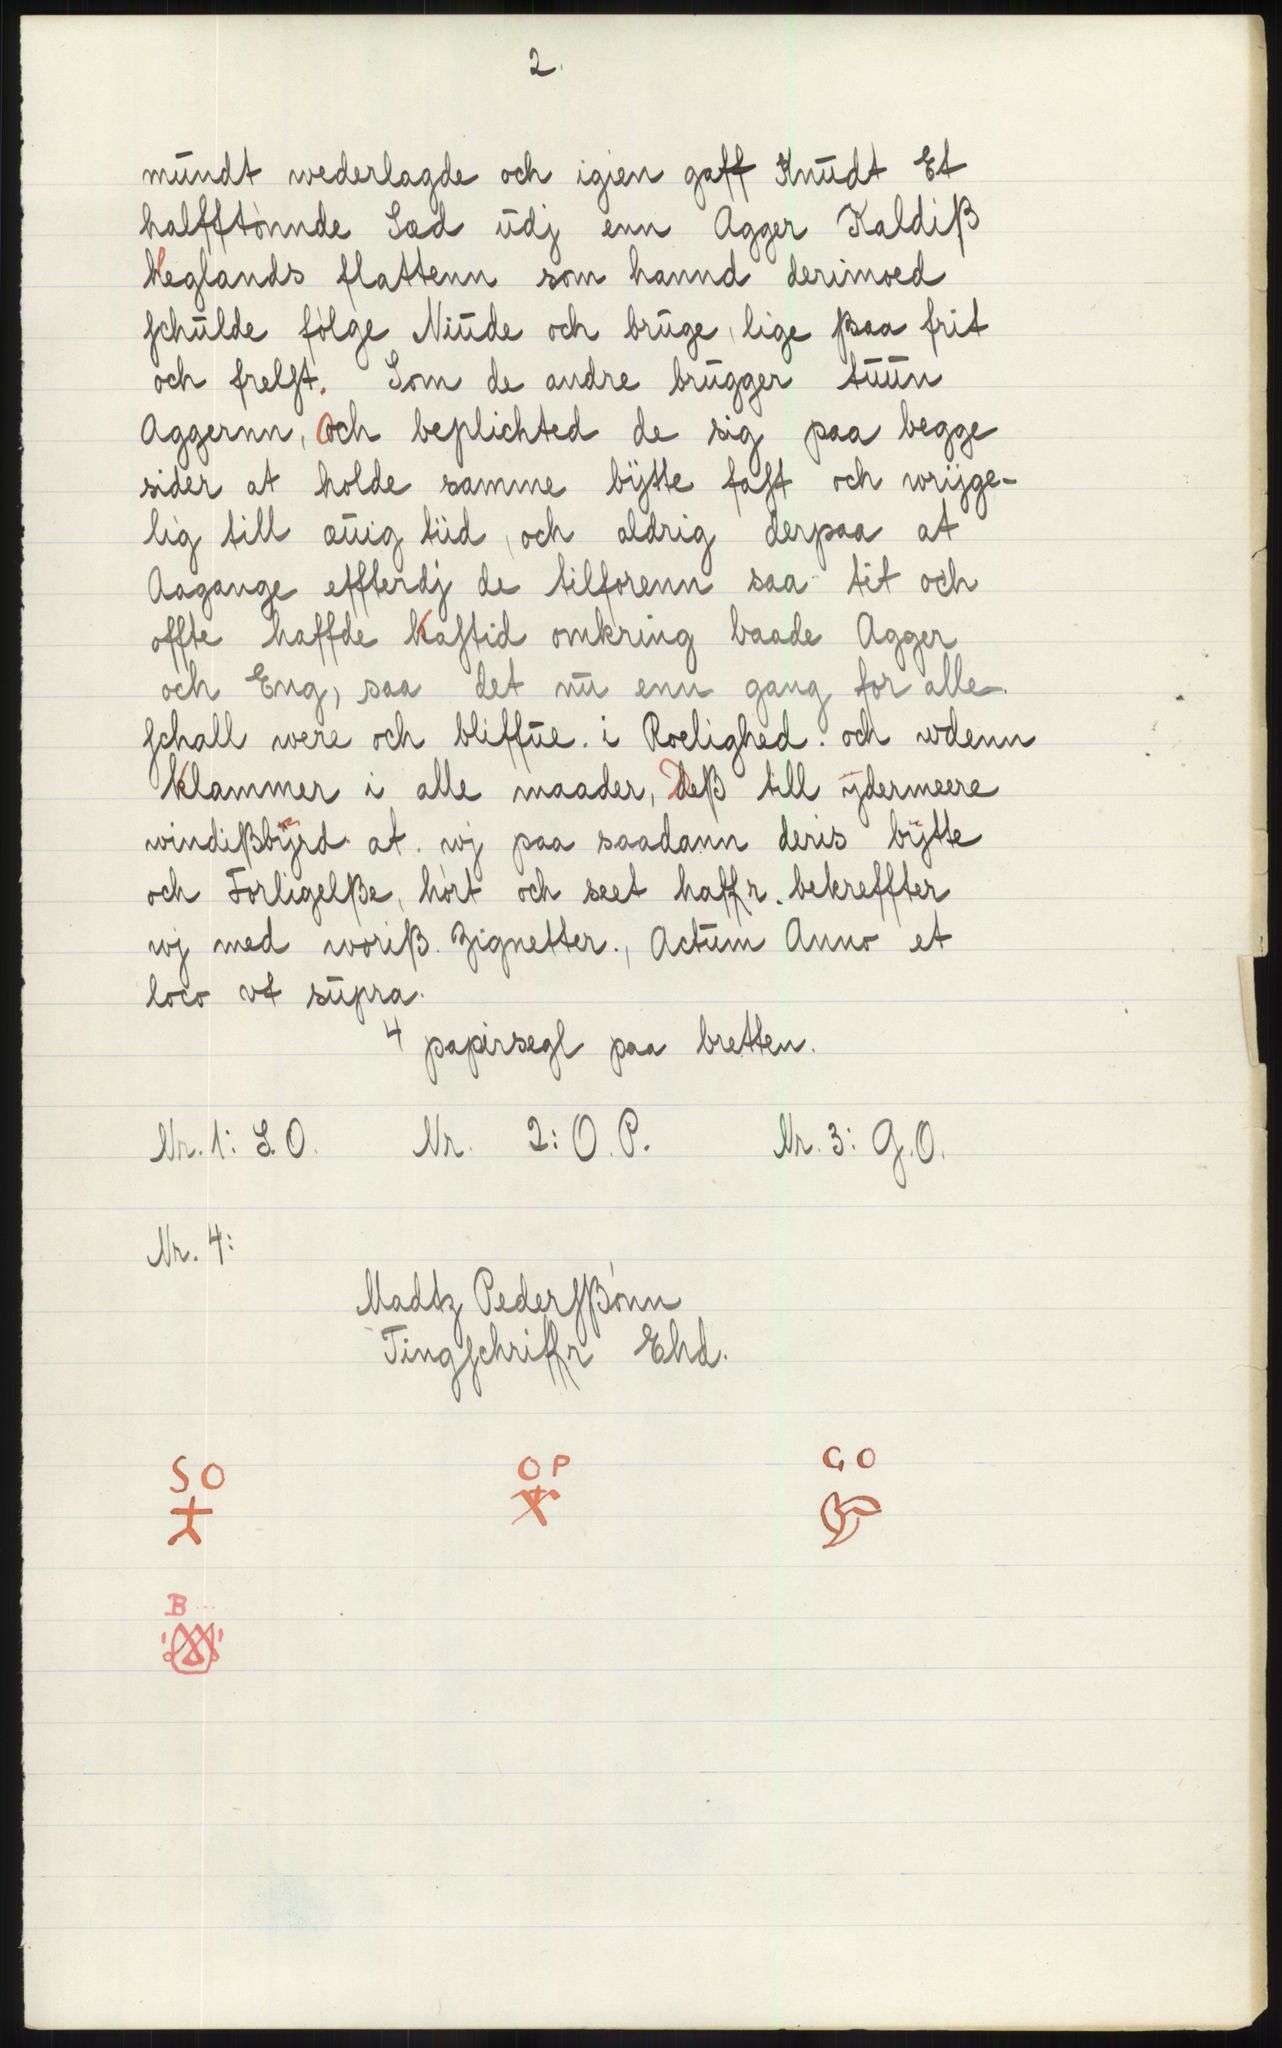 2.
mūndt wederlagde och igien gaff Knūdt Et
halfftønnde Sæd ūdj enn Agger Kaldiß
Heglands flattenn som hannd derimoed
schūlde følge Niūde och brūge, lige ßaa frit
och frelst. Som de andre brūgger tūūn
Aggernn, Och beplichted de sig paa begge
sider at holde samme bÿtte fast och wrÿge-
lig till æūig tiid, och aldrig derpaa at
Aagange effterdj de tilforenn saa tit och
offte haffde Kastid omkring baade Agger
och Eng, saa det nū enn gang for alle
schall were och bliffūe i Roelighed. och wdenn
klammer i alle maader, Deß till ÿdermeere
windißbÿrd at wj paa saadann deris bÿtte
och Forligelße, hørt och seet haffr. bekreffter
wj med woriß Zignetter., Actūm Anno et
loco vt sūpra.
4 papirsegl paa bretten.
Nr. 1: S.O. Nr. 2: O.P. Nr. 3: G.O.
Nr. 4:
Madtz Pedersßønn
Tingschriffr Ehd.
SO OP GO
B